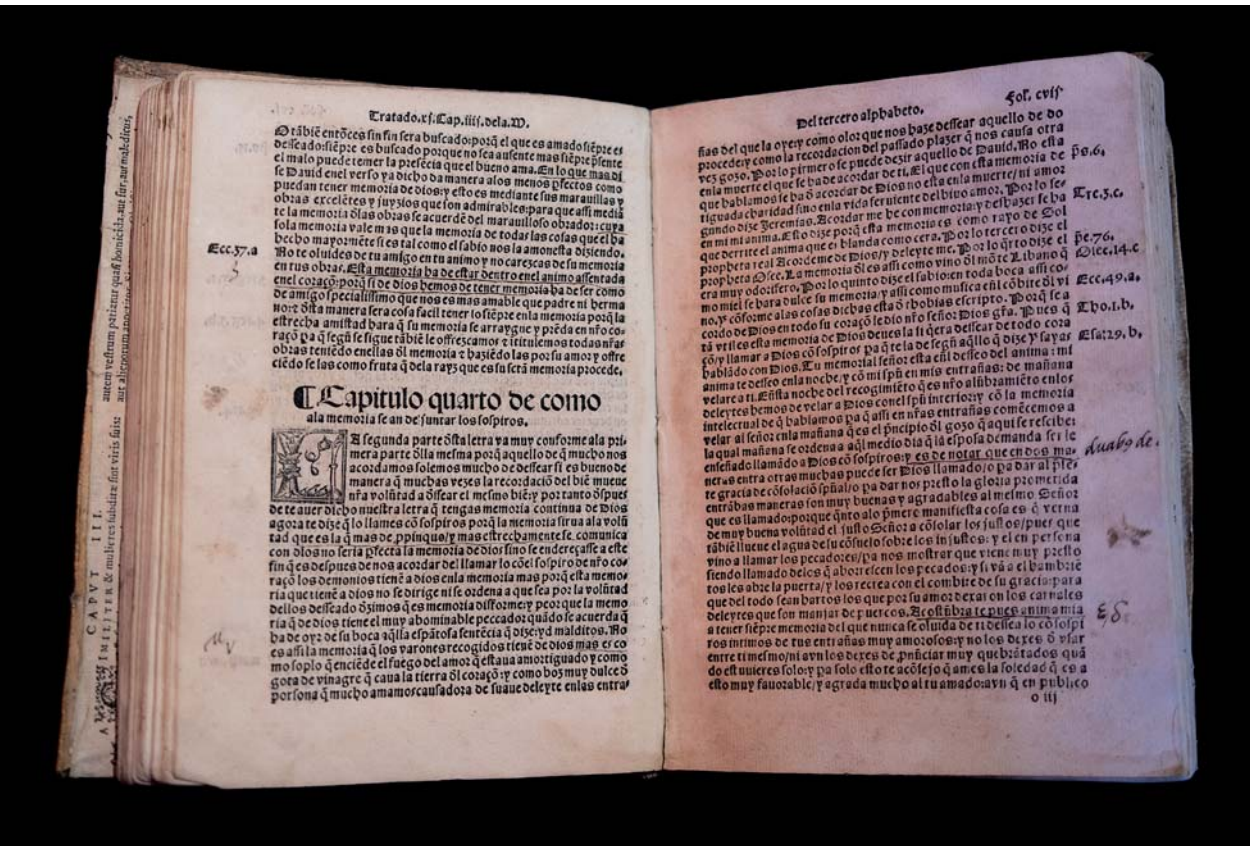 Tratado.xj.Cap.iiij.dela.M.
O tãbiẽ entõces sin fin sera buscado:porq̃ el que es amado siẽpre es
desseado:siẽpre es buscado porque no sea ausente mas siẽpre p̃sente
el malo puede temer la presẽcia que el bueno ama.En lo que mas di
se Dauid enel verso ya dicho da manera alos menos p̃fectos como
puedan tener memoria de dios:y esto es mediante sus marauillas y
obras excelẽtes y juyzios que son admirables:para que assi mediã
te la memoria d̃las obras se acuerdẽ del marauilloso obrador:cuya
sola memoria vale mas que la memoria de todas las cosas que el ha
hecho mayormẽte si es tal como el sabio nos la amonesta diziendo.
No te oluides de tu amigo en tu animo y no carezcas de su memoria
en tus obras.Esta memoria ha de estar dentro enel animo assentada
enel coraçõ:porq̃ si de dios hemos de tener memoria ha de ser como
de amigo specialissimo que nos es mas amable que padre ni herma
no:z d̃sta manera sera cosa facil tener lo siẽpre enla memoria porq̃ la
estrecha amistad hara q̃ su memoria se arraygue y prẽda en nr̃o co-
raçõ pa q̃ segũ se sigue tãbiẽ le offrezcamos z ititulemos todas nr̃as
obras teniẽdo enellas d̃l memoria z haziẽdo las por su amor y offre
ciẽdo se las como fruta q̃ dela rayz que es su sctã memoria procede.
Ecc.37.a
¶Capitulo quarto de como
ala memoria se an de juntar los sospiros.
LA segunda parte d̃sta letra va muy conforme ala pri-
mera parte d̃lla mesma porq̃ aquello de q̃ mucho nos
acordamos solemos mucho de dessear si es bueno de
manera q̃ muchas vezes la recordaciõ del biẽ mueue
nr̃a volũtad a d̃ssear el mesmo biẽ:y por tanto d̃spues
de te auer dicho nuestra letra q̃ tengas memoria continua de Dios
agora te dize q̃ lo llames cõ sospiros porq̃ la memoria sirua ala volũ
tad que es la q̃ mas de.p̃pinquo:y mas estrechamente se comunica
con dios no seria p̃fecta la memoria de dios sino se endereçasse a este
fin q̃ es despues de nos acordar del llamar lo cõel sospiro de nr̃o co-
raçõ los demonios tienẽ a dios enla memoria mas porq̃ esta memo-
ria que tienẽ a dios no se dirige ni se ordena a que sea por la volũtad
dellos desseado dzimos q̃ es memoria difforme:y peor que la memo
ria q̃ de dios tiene el muy abominable peccador quãdo se acuerda q̃
ha de oyr de su boca aq̃lla espãtosa sentẽcia q̃ dize:yd malditos.No
es assi la memoria q̃ los varones recogidos tienẽ de dios mas es co
mo soplo q̃ enciẽde el fuego del amor q̃ estaua amortiguado y como
gota de vinagre q̃ caua la tierra d̃l coraçõ:y como boz muy dulce d̃
persona q̃ mucho amamos causadora de suaue deleyte enlas entra-
Del tercero alphabeto.
Fol. cvij
ñas del que la oye:y como olor que nos haze dessear aquello de do
procede:y como la recordacion del passado plazer q̃ nos causa otra
vez gozo.Por lo primero se puede dezir aquello de Dauid.No esta
enla muerte el que se ha de acordar de ti.El que con esta memoria de
que hablamos se ha d̃ acordar de Dios no esta enla muerte/ni amor
tiguada charidad sino enla vida feruiente del biuo amor.Por lo se-
gundo dize Jeremias.Acordar me he con memoria:y deshazer se ha
en mi mi anima.Esto dize porq̃ esta memoria es como rayo de Sol
que derrite el anima que es blanda como cera.Por lo tercero dize el
propheta real Acorde me de Dios/y deleyte me.Por lo q̃rto dize el
propheta Osee.La memoria d̃l es assi como vino d̃l mõte Libano q̃
era muy odorifero.Por lo quinto dize el sabio:en toda boca assi co-
mo miel se hara dulce su memoria/y assi como musica enl cõbite d̃l vi
no.y cõforme alas cosas dichas esta d̃ thobias escripto.Porq̃ se a
cordo de Dios en todo su coraçõ le dio nr̃o señor Dios gr̃a.Pues q̃
tã vtil es esta memoria de Dios deues la si q̃era dessear de todo cora
çõ/y llamar a Dios cõ sospiros pa q̃ te la de segũ aq̃llo q̃ dize ysayas
hablãdo con Dios.Tu memorial señor esta enl desseo del anima:mi
anima te desseo enla noche/y cõ mi sp̃u en mis entrañas:de mañana
velare a ti.Ensta noche del recogimiẽto q̃ es nr̃o alũbramiẽto enlos
deleytes hemos de velar a Dios conel sp̃u interior:y cõ la memoria
intelectual de q̃ hablamos pa q̃ assi en nr̃as entrañas comẽcemos a
velar al señor enla mañana q̃ es el p̃ncipio d̃l gozo q̃ aqui se rescibe:
la qual mañana se ordena a aq̃l medio dia q̃ la esposa demanda ser le
enseñado llamãdo a Dios cõ sospiros:y es de notar que en dos ma-
neras entra otras muchas puede ser Dios llamado/o pa dar al p̃sẽ-
te gracia de cõsolaciõ sp̃ual/o pa dar nos presto la gloria prometida
entrãbas maneras son muy buenas y agradables al mesmo Señor
que es llamado:porque q̃nto alo p̃mero manifiesta cosa es q̃ verna
de muy buena volũtad el justo Señor a cõsolar los justos/pues que
tãbiẽ llueue el agua de su cõsuelo sobre los injustos:y el en persona
vino a llamar los pecadores/pa nos mostrar que viene muy presto
siendo llamado delos q̃ aborrescen los pecados:y si va a el hambriẽ
tos les abre la puerta/y los recrea con el combite de su gracia:para
que del todo sean hartos los que por su amor dexaron los carnales
deleytes que son manjar de puercos.Acostũbra te pues anima mia
a tener siẽpre memoria del que nunca se oluida de ti dessea lo cõ sospi
ros intimos de tus entrañas muy amorosos:y no los dexes d̃ vsar
entre ti mesmo/ni avn los dexes de p̃nũciar muy quebrãtados quã
do estuuieres solo:y pa solo esto te acõsejo q̃ ames la soledad q̃ es a
esto muy fauorable/y agrada mucho al tu amado:avn q̃ en publico
o iij
p̃s.6.
Tre.3.c.
p̃s.76.
Osee.14.c
Ecc.49.a.
Tho.1.b.
Esa:29.b.
duabꝰ de.
CAPVT III.